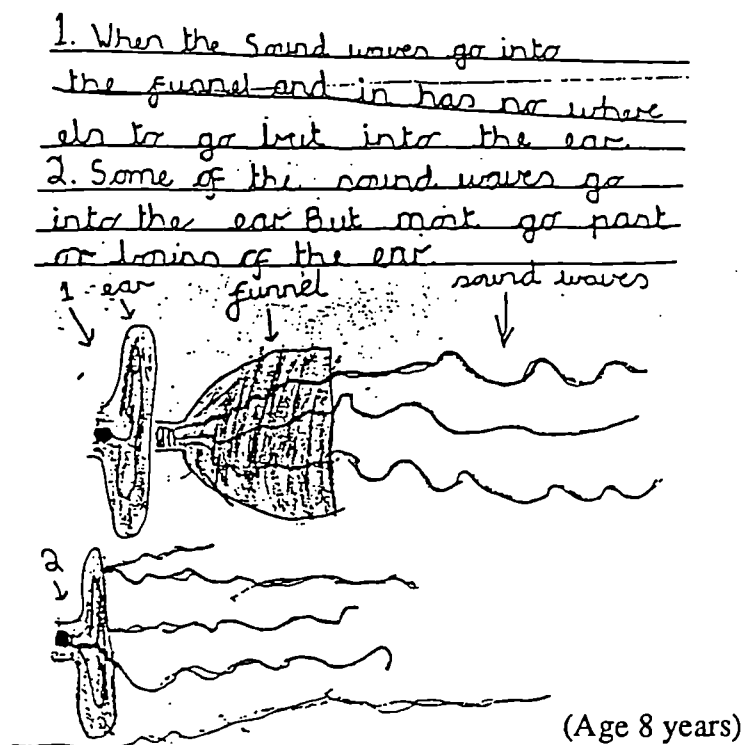 1. When the sound waves go into
the funnel and in has no where
els to go but into the ear.
2. Some of the sound waves go
into the ear. But most go past
or of the ear.
1 ear funnel sound waves
2
(Age 8 years)